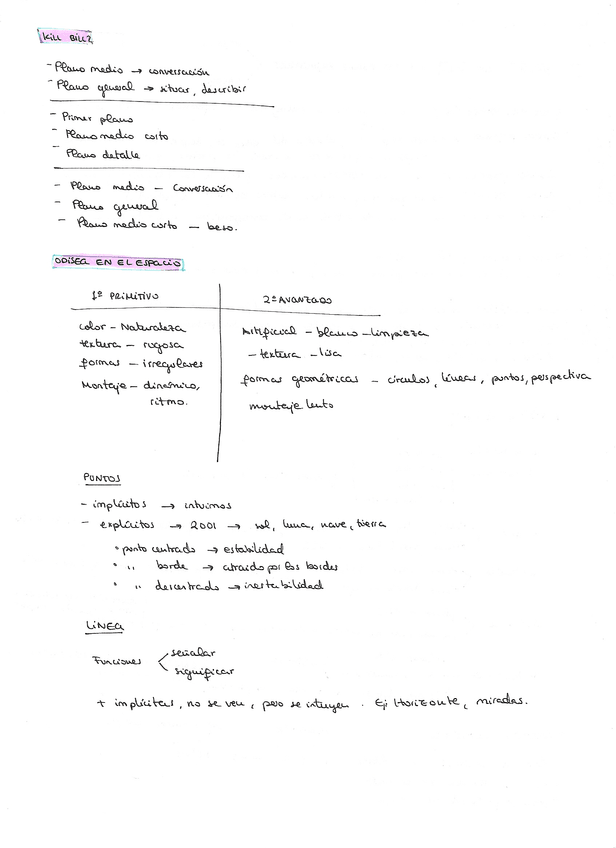 KILL BILL2
- Plano medio → conversación
- Plano general → situar, describir
- Primer plano
- Plano medio corto
- Plano detalle
- Plano medio - Conversación
- Plano general
- Plano medio corto - beso.
ODISEA EN EL ESPACIO
1º PRIMITIVO
color - Naturaleza
textura - rugosa
formas - irregulares
Montaje - dinámico,
ritmo.
2º AVANZADO
Artificial - blanco - limpieza
- textura - lisa
formas geométricas - círculos, líneas, puntos, perspectiva
montaje lento
PUNTOS
- implícitos → intuimos
- explícitos → 2001 → sol, luna, nave, tierra
• punto centrado → estabilidad
• ,, borde → atraído por los bordes
• ,, descentrado → inestabilidad
LÍNEA
Funciones < señalar
significar
+ implícitas, no se ven, pero se intuyen. Ej Horizonte, miradas.